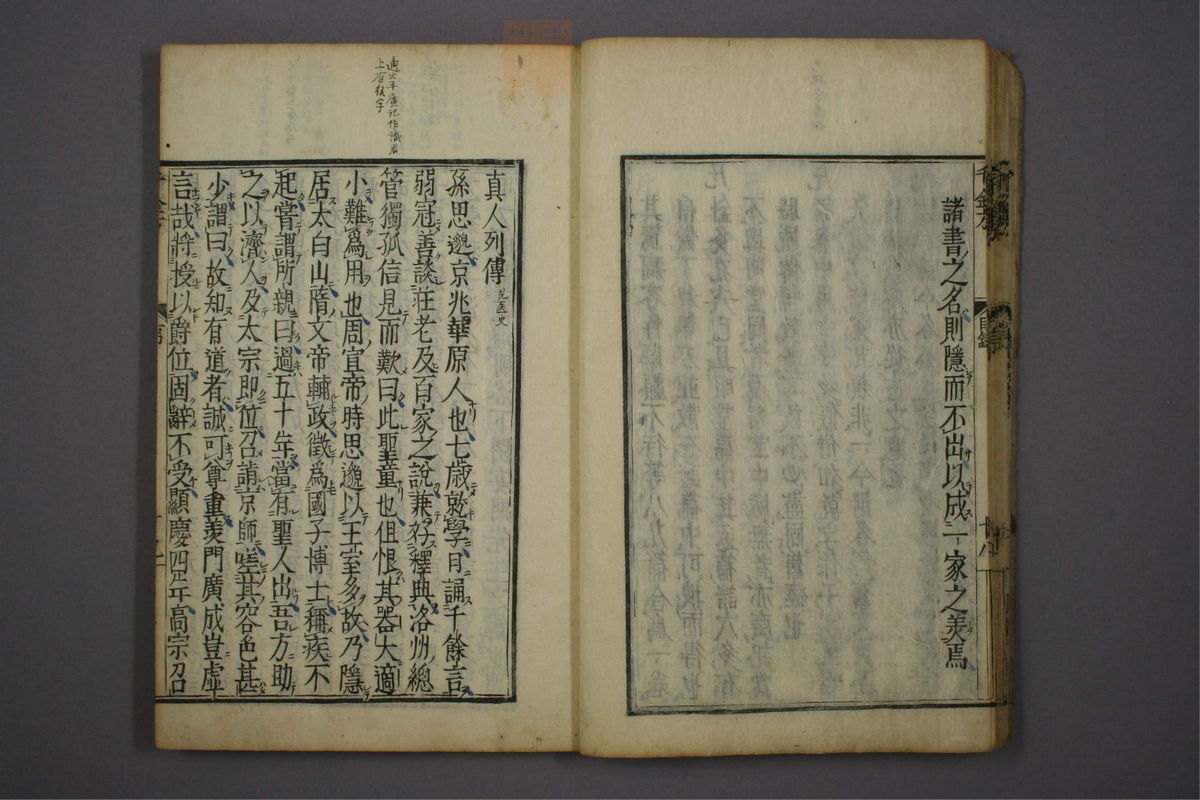 諸書之名則隱而不出以成一家之美焉
目錄
十八
適太平廣記作識君
上有後字
真人列傳 見医史
孫思邈京兆華原人也七歲就學日誦千餘言
弱冠善談莊老及百家之說兼好釋典洛州總
管獨孤信見而歎曰此聖童也但恨其器大適
小難爲用也周宣帝時思邈以王室多故乃隱
居太白山隋文帝輔政徵爲國子博士稱疾不
起嘗謂所親曰過五十年當有聖人出吾方助
之以濟人及太宗即位召詣京師嗟其容色甚
少謂曰故知有道者誠可尊重羨門廣成豈虛
言哉將授以爵位固辭不受顯慶四年高宗召